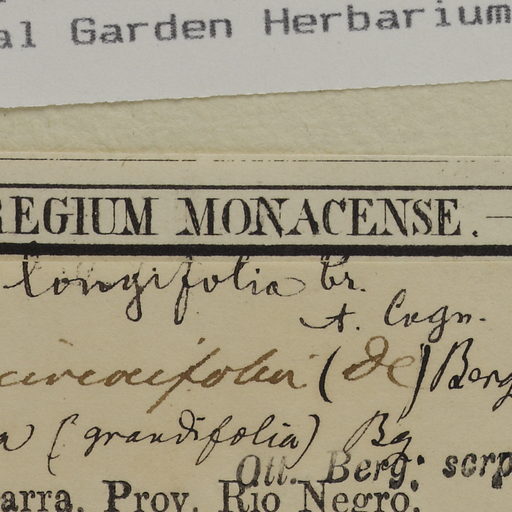 al Garden Herbarium
REGIUM MONACENSE.
longifolia Tr.
A. Cogn.
(DC) Berg
a (grandifolia) Bg
Ott. Berg: scrp
arra, Prov. Rio Negro.